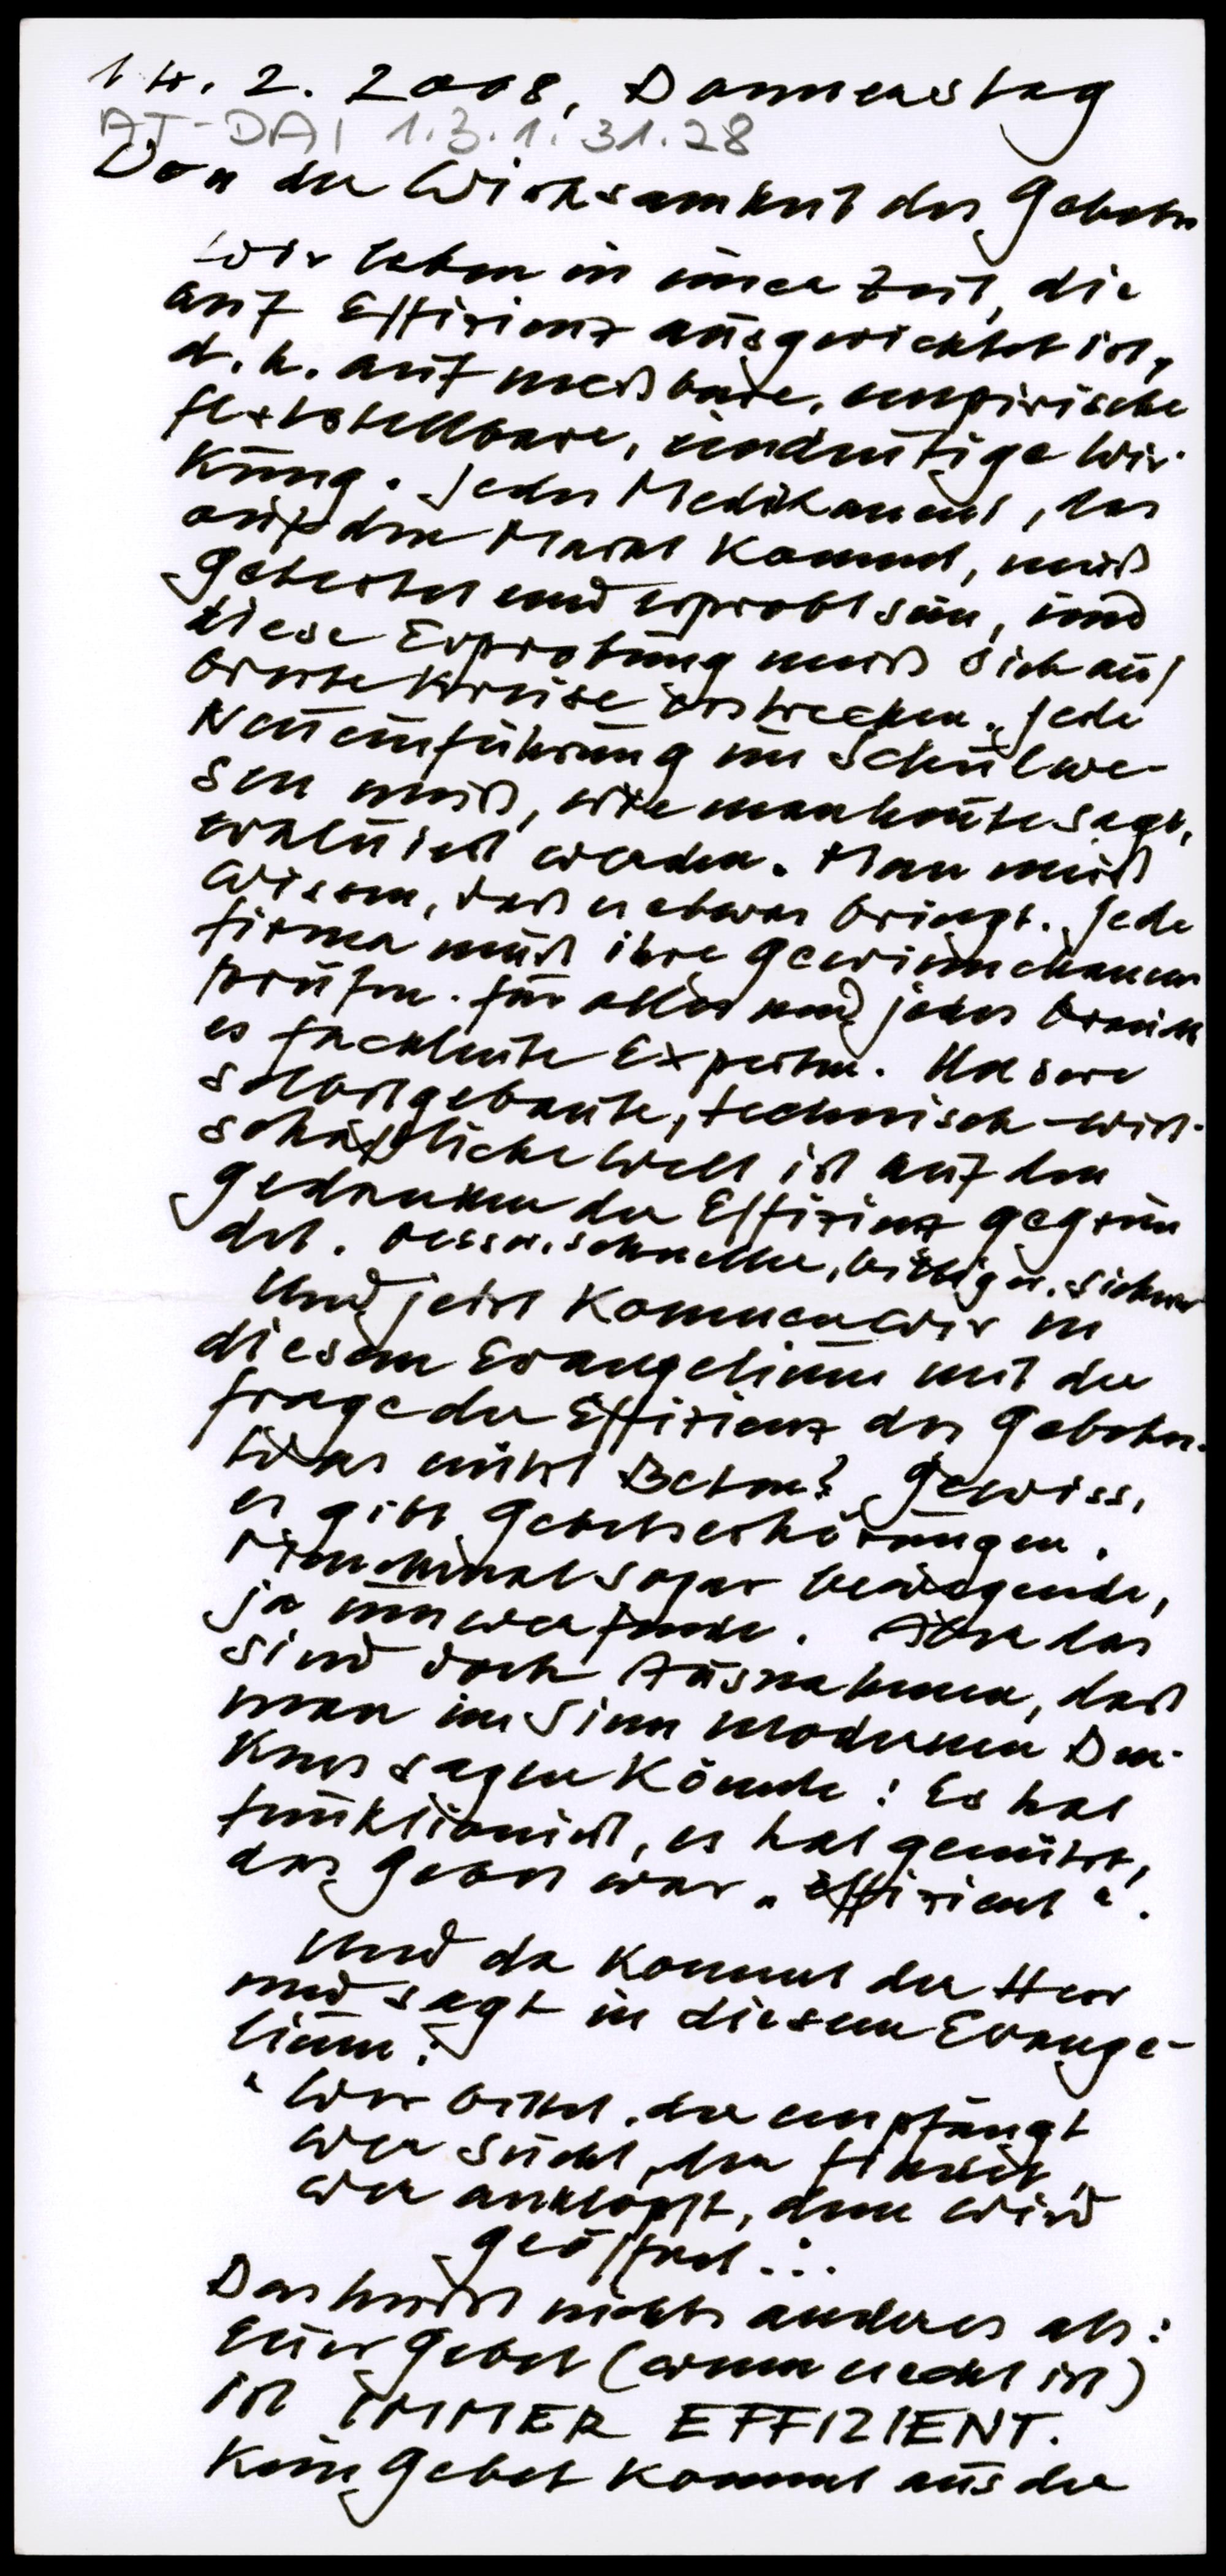 14. 2. 2008, Donnerstag
AT-DAI 1.3.1.31.28
Von der Wirksamkeit des Gebetes
Wir leben in einer Zeit, die
auf Effizienz ausgerichtet ist,
d. h. auf meßbare, empirische
feststellbare, eindeutige Wir-
kung. Jedes Medikament, das
auf den Markt kommt, muß
getestet und erprobt sein, und
diese Erprobung muß sich auf
breite Kreise erstrecken. Jede
Neueinführung im Schulwe-
sen muß, wie man heute sagt,
evaluiert werden. Man muß
wissen, daß es etwas bringt. Jede
Firma muß ihre Gewinnchancen
prüfen. Für alles und jedes braucht
es Fachleute Experten. Unsere
selbstgebaute, technisch-wirt-
schaftliche Welt ist auf den
Gedanken der Effizienz gegrün
det. besser, schneller, billiger, sicherer
Und jetzt kommen wir in
diesem Evangelium mit der
Frage der Effizienz des Gebetes.
Was nützt Beten? Gewiss,
es gibt Gebetserhörungen.
Manchmal sogar bewegende,
ja umwerfende. Aber das
sind doch Ausnahmen, daß
man im Sinn modernen Den-
kens sagen könnte: Es hat
funktioniert, es hat genützt,
das Gebet war „effizient“.
Und da kommt der Herr
und sagt in diesem Evange-
lium:
„Wer bittet, der empfängt
wer sucht, der findet,
wer anklopft, dem wird
geöffnet...
Das heißt nichts anderes als:
Euer Gebet (wenn es echt ist)
ist IMMER EFFIZIENT.
Kein Gebet kommt aus der